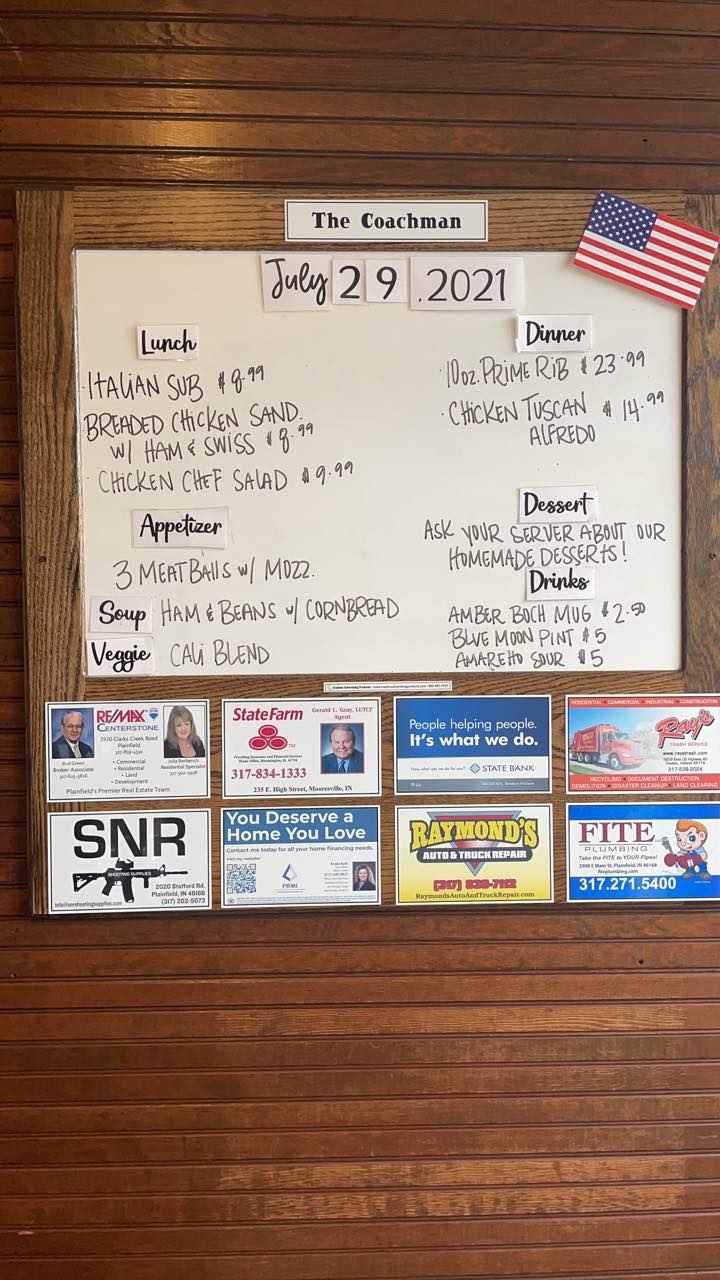 The Coachman
July 29, 2021
Lunch
ITALIAN SUB $8.99
BREADED CHICKEN SAND.
W/ HAM & SWISS $8.99
CHICKEN CHEF SALAD $9.99
Appetizer
3 MEATBALLS W/ MOZZ.
Soup HAM & BEANS W/ CORNBREAD
Veggie CALI BLEND
Dinner
10oz. PRIME RIB $23.99
CHICKEN TUSCAN $14.99
ALFREDO
Dessert
ASK YOUR SERVER ABOUT OUR
HOMEMADE DESSERTS!
Drinks
AMBER BOCH MUG $2.50
BLUE MOON PINT $5
AMARETTO SOUR $5
RE/MAX
CENTERSTONE
3930 Clarks Creek Road
Plainfield
317-839-4330
• Commercial
• Residential
• Land
• Development
Bud Green
Broker Associate
Julia Berbench
Residential Specialist
Plainfield's Premier Real Estate Team
State Farm
Gerald L. Gray, LUTCF
Agent
Providing Insurance and Financial Services
Home Office, Bloomington, IL 61710
317-834-1333
235 E. High Street, Mooresville, IN
People helping people.
It's what we do.
Now, what can we do for you?
STATE BANK
RESIDENTIAL • COMMERCIAL • INDUSTRIAL • CONSTRUCITON
Ray's
TRASH SERVICE
www.raystrash.com
317-539-2024
RECYCLING • DOCUMENT DESTRUCTION
DEMOLITION • DISASTER CLEANUP • LAND CLEARING
SNR
SHOOTING SUPPLIES
2020 Stafford Rd.
Plainfield, IN 46168
info@snrshootingsupplies.com (317) 203-5073
You Deserve a
Home You Love
Contact me today for all your home financing needs.
Visit my website!
PRMI
RAYMOND'S
AUTO & TRUCK REPAIR
(317) 838-7112
RaymondsAutoAndTruckRepair.com
FITE
PLUMBING
Take the FITE to YOUR Pipes!
2908 E Main St, Plainfield, IN 46168
fiteplumbing.com
317.271.5400